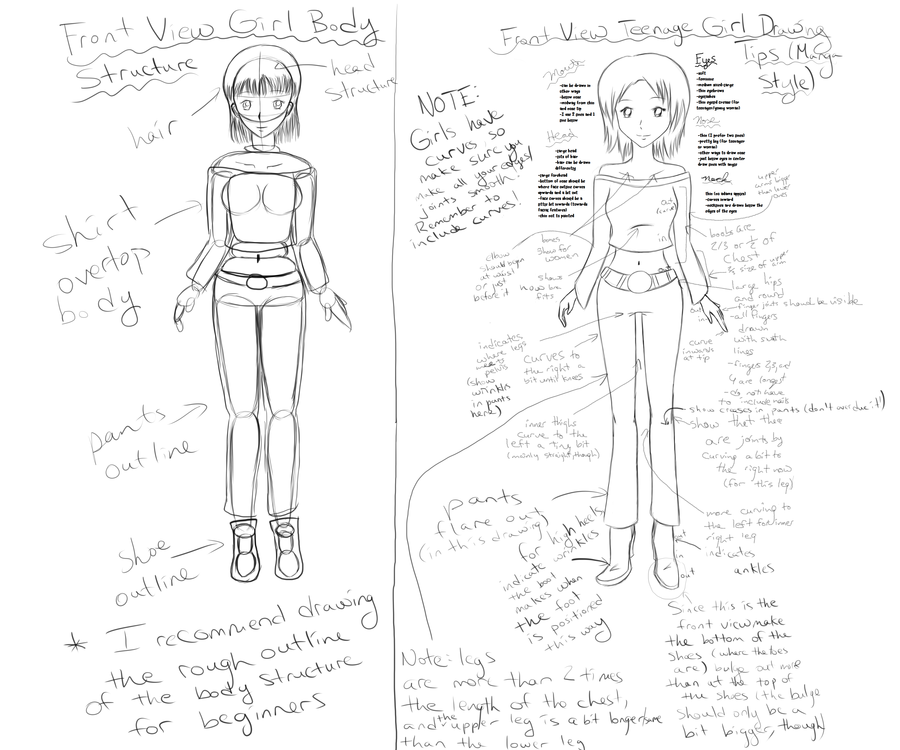 Front View Girl Body
Structure
head
structure
hair
shirt
overtop
body
pants
outline
Shoe
outline
* I recommend drawing
the rough outline
of the body structure
for beginners
Front View Teenage Girl Drawing
Tips (Manga
Style)
NOTE:
Girls have
curves, so
make sure you
make all your edges/
joints smooth!
Remember to
include curves!
Mouth
-can be drawn in
other ways
-below nose
-midway from chin
and nose tip
Head
-large head
-lots of hair
-hair can be drawn
differently
-large forehead
-bottom of nose should be
where face outline curves
upwards and a bit out
-face curves should be a
little bit inwards (towards
facing features)
-chin not to pointed
Eyes
-soft
-feminine
-medium sized-large
-thin eyebrows
-eyelashes
-thin eyelid crease (for
teenager/young woman)
Nose
-thin (I prefer two lines)
-pretty big (for teenager
or woman)
-other ways to draw nose
-just below eyes in center
draw lines with angle
Neck
thin (no adams apple)
-curves inward
-neckline are drawn below the
edges of the eyes
upper
curve bigger
than lower
ones
out
(curve)
in
out
elbow
should begin
at waist
or just
before it
bones
show for
women
shows
how it
fits
boobs are
2/3 or 1/2 of
chest
large hips
and round
finger joints should be visible
-all fingers
drawn
with smooth
lines
-fingers 2,3, and
4 are longest
-do not have
to include nails
out
in
curve
inwards
at tip
indicates
where legs
meets
pelvis
(show
wrinkles
in pants
here)
curves to
the right a
bit until knees
inner thighs
curve to the
left a tiny bit
(mainly straight, though)
show creases in pants (don't over due it!)
show that there
are joints by
curving a bit to
the right now
(for this leg)
pants
flare out
(in this drawing)
for high heels
indicate wrinkles
the boot
makes when
the foot
is positioned
this way
more curving to
the left for inner
right leg
indicates
ankles
in
out
Since this is the
front view make
the bottom of the
shoes (where the toes
are) bulge out more
than at the top of
the shoes (the bulge
should only be a
bit bigger, though)
Note: legs
are more than 2 times
the length of the chest,
and the upper leg is a bit longer/same
than the lower leg